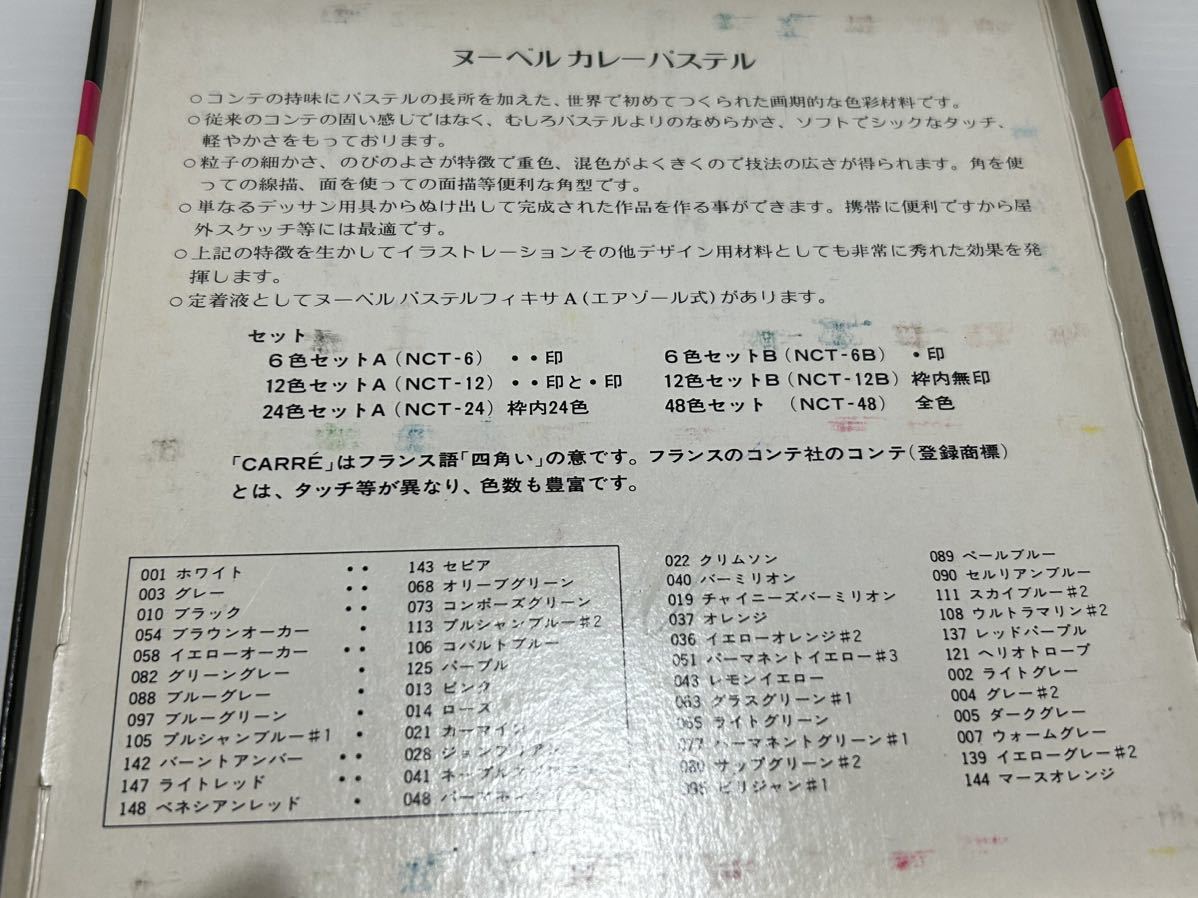 ヌーベル カレーパステル
○コンテの持味にパステルの長所を加えた、世界で初めてつくられた画期的な色彩材料です。
○従来のコンテの固い感じではなく、むしろパステルよりのなめらかさ、ソフトでシックなタッチ、
軽やかさをもっております。
○粒子の細かさ、のびのよさが特徴で重色、混色がよくきくので技法の広さが得られます。角を使
っての線描、面を使っての面描等便利な角型です。
○単なるデッサン用具からぬけ出して完成された作品を作る事ができます。携帯に便利ですから屋
外スケッチ等には最適です。
○上記の特徴を生かしてイラストレーションその他デザイン用材料としても非常に秀れた効果を発
揮します。
○定着液としてヌーベル パステルフィキサ A(エアゾール式)があります。
セット
6色セットA (NCT-6) ・・印
12色セットA (NCT-12) ・・印と・印
24色セットA (NCT-24) 枠内24色
6色セットB (NCT-6B) ・印
12色セットB (NCT-12B) 枠内無印
48色セット (NCT-48) 全色
「CARRÉ」はフランス語「四角い」の意です。フランスのコンテ社のコンテ(登録商標)
とは、タッチ等が異なり、色数も豊富です。
001 ホワイト ・・
003 グレー ・・
010 ブラック ・・
054 ブラウンオーカー ・
058 イエローオーカー ・・
082 グリーングレー ・
088 ブルーグレー ・
097 ブルーグリーン ・
105 プルシャンブルー#1 ・
142 バーントアンバー ・・
147 ライトレッド ・・
148 ベネシアンレッド ・
143 セピア
068 オリーブグリーン
073 コンポーズグリーン
113 プルシャンブルー#2
106 コバルトブルー
125 パープル
013 ピンク
014 ローズ
021 カーマイン
028
041
048
022 クリムソン
040 バーミリオン
019 チャイニーズバーミリオン
037 オレンジ
036 イエローオレンジ#2
051 パーマネントイエロー#3
043 レモンイエロー
063 グラスグリーン#1
065 ライトグリーン
077 パーマネントグリーン#1
080 サップグリーン#2
095 ビリジャン#1
089 ペールブルー
090 セルリアンブルー
111 スカイブルー#2
108 ウルトラマリン#2
137 レッドパープル
121 ヘリオトロープ
002 ライトグレー
004 グレー#2
005 ダークグレー
007 ウォームグレー
139 イエローグレー#2
144 マースオレンジ